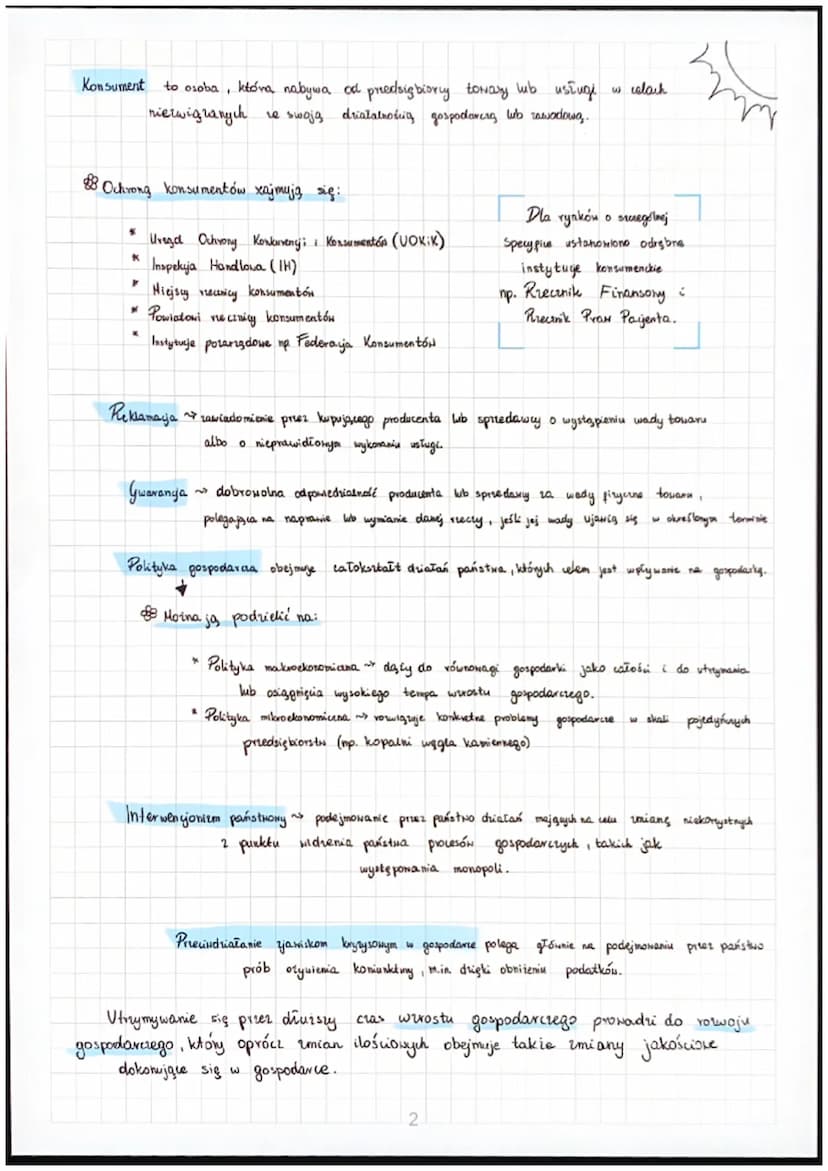 Konsument to osoba, która nabywa od przedsiębiorcy towary lub usługi w celach
niezwiązanych ze swoją działalnością gospodarczą lub zawodową.
Ochroną konsumentów zajmują się:
* Urząd Ochrony Konkurencji i Konsumentów (UOKiK)
* Inspekcja Handlowa (IH)
* Miejscy rzecznicy konsumentów
* Powiatowi rzecznicy konsumentów
* Instytucje pozarządowe np. Federacja Konsumentów
Dla rynków o szczególnej
specyfice ustanowiono odrębne
instytucje konsumenckie
np. Rzecznik Finansowy i
Rzecznik Praw Pacjenta.
Reklamacja ⇝ zawiadomienie przez kupującego producenta lub sprzedawcy o wystąpieniu wady towaru
albo o nieprawidłowym wykonaniu usługi.
Gwarancja ⇝ dobrowolna odpowiedzialność producenta lub sprzedawcy za wady fizyczne towaru,
polegająca na naprawie lub wymianie danej rzeczy, jeśli jej wady ujawią się w określonym terminie
Polityka gospodarcza obejmuje całokształt działań państwa, których celem jest wpływanie na gospodarkę.
Można ją podzielić na:
* Polityka makroekonomiczna ⇝ dąży do równowagi gospodarki jako całości i do utrzymania
lub osiągnięcia wysokiego tempa wzrostu gospodarczego.
* Polityka mikroekonomiczna ⇝ rozwiązuje konkretne problemy gospodarcze w skali pojedyńczych
przedsiębiorstw (np. kopalni węgla kamiennego)
Interwencjonizm państwowy ⇝ podejmowanie przez państwo działań mających na celu zmianę niekorzystnych
z punktu widzenia państwa procesów gospodarczych, takich jak
występowania monopoli.
Przeciwdziałanie zjawiskom kryzysowym w gospodarce polega głównie na podejmowaniu przez państwo
prób ożywienia koniunktury, m.in. dzięki obniżeniu podatków.
Utrzymywanie się przez dłuższy czas wzrostu gospodarczego prowadzi do rozwoju
gospodarczego, który oprócz zmian ilościowych obejmuje także zmiany jakościowe
dokonujące się w gospodarce.
2